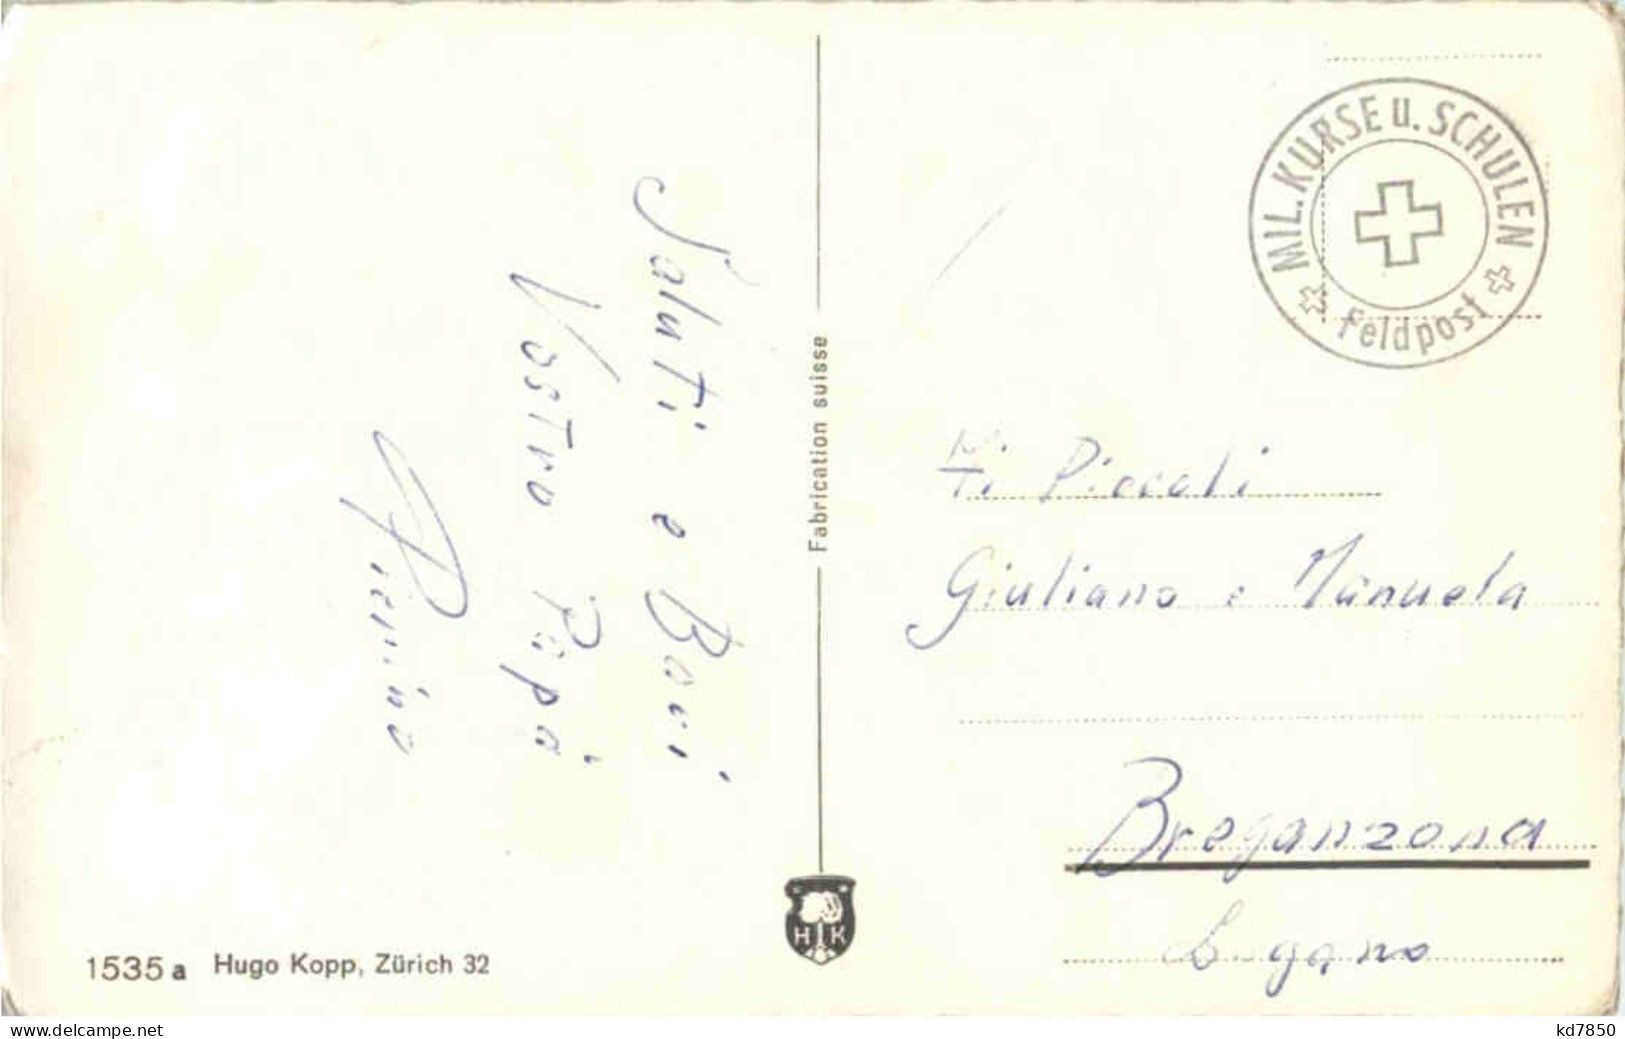 Saluti e Baci
Vostro Papà
Pierino
Fabrication suisse
H K
1535 a Hugo Kopp, Zürich 32
MIL. KURSE u. SCHULEN
Feldpost
Piccoli
Giuliano e Manuela
Breganzona
Lugano
www.delcampe.net
kd7850